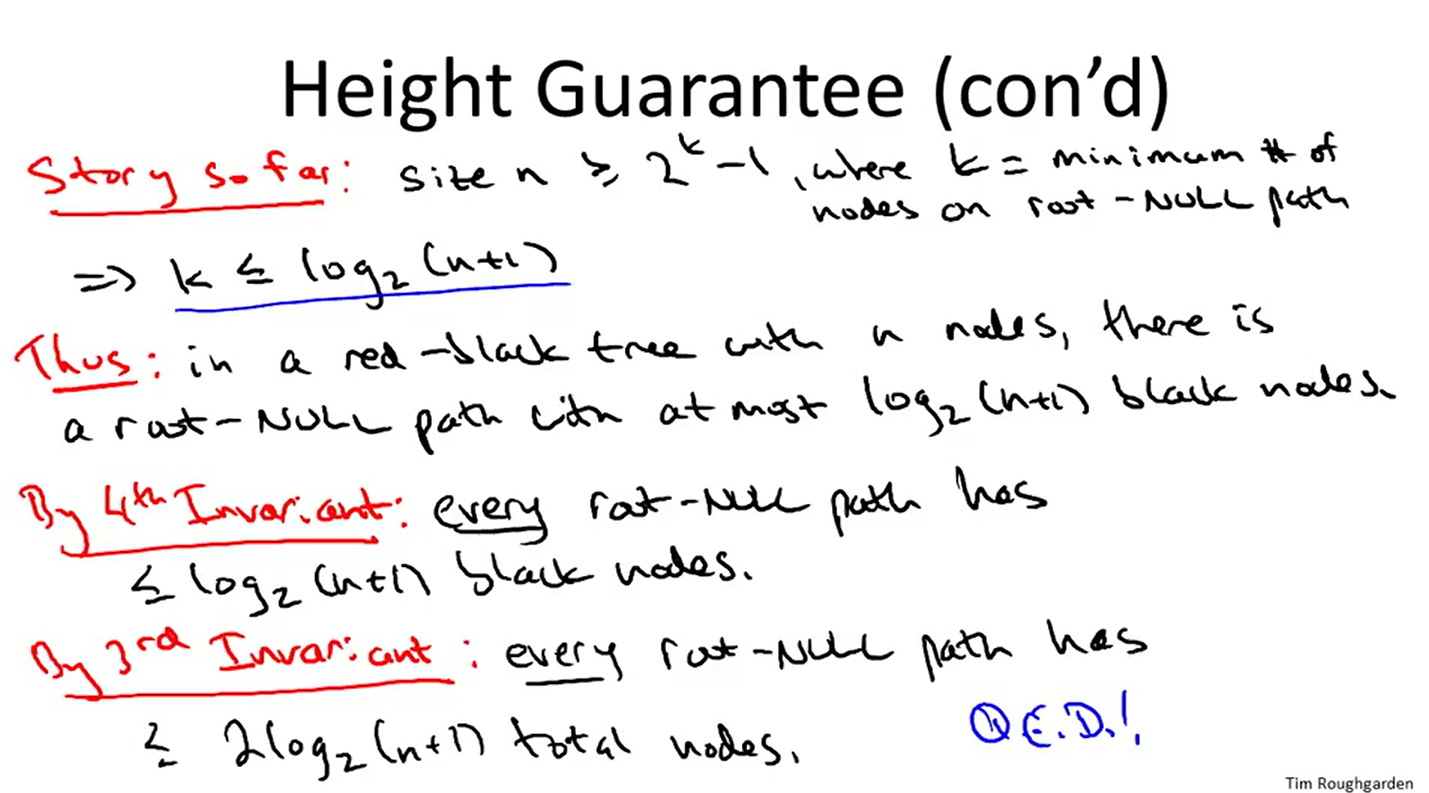 Height Guarantee (con'd)
Story so far: size n ≥ 2^k - 1, where k = minimum # of
nodes on root-NULL path
=> k ≤ log₂(n+1)
Thus: in a red-black tree with n nodes, there is
a root-NULL path with at most log₂(n+1) black nodes.
By 4th Invariant: every root-NULL path has
≤ log₂(n+1) black nodes.
By 3rd Invariant: every root-NULL path has
≤ 2log₂(n+1) total nodes.
Q.E.D.!
Tim Roughgarden